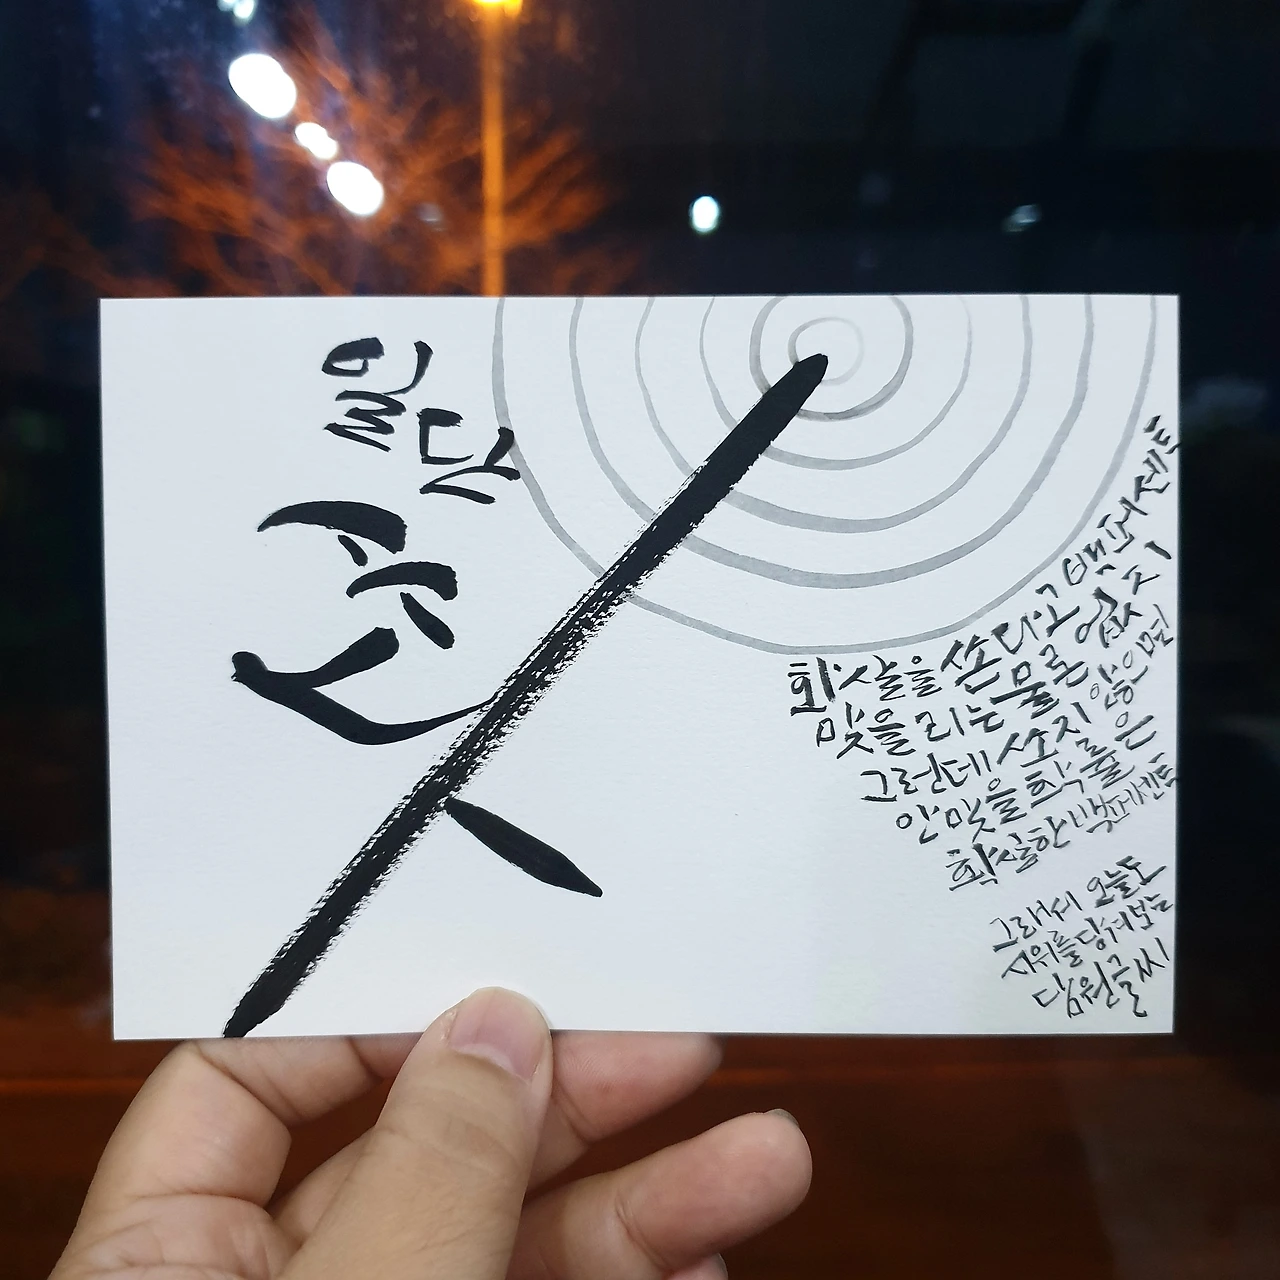 일단
쏴
화살을 쏜다고 백퍼센트
맞을 리는 물론 없지
그런데 쏘지 않으면
안 맞을 확률은
확실한 백퍼센트
그래서 오늘도
시위를 당겨보는
담원글씨